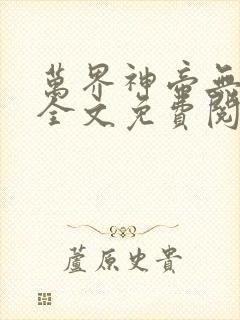 萬界神帝無
全文免費閱
蘆原史貴